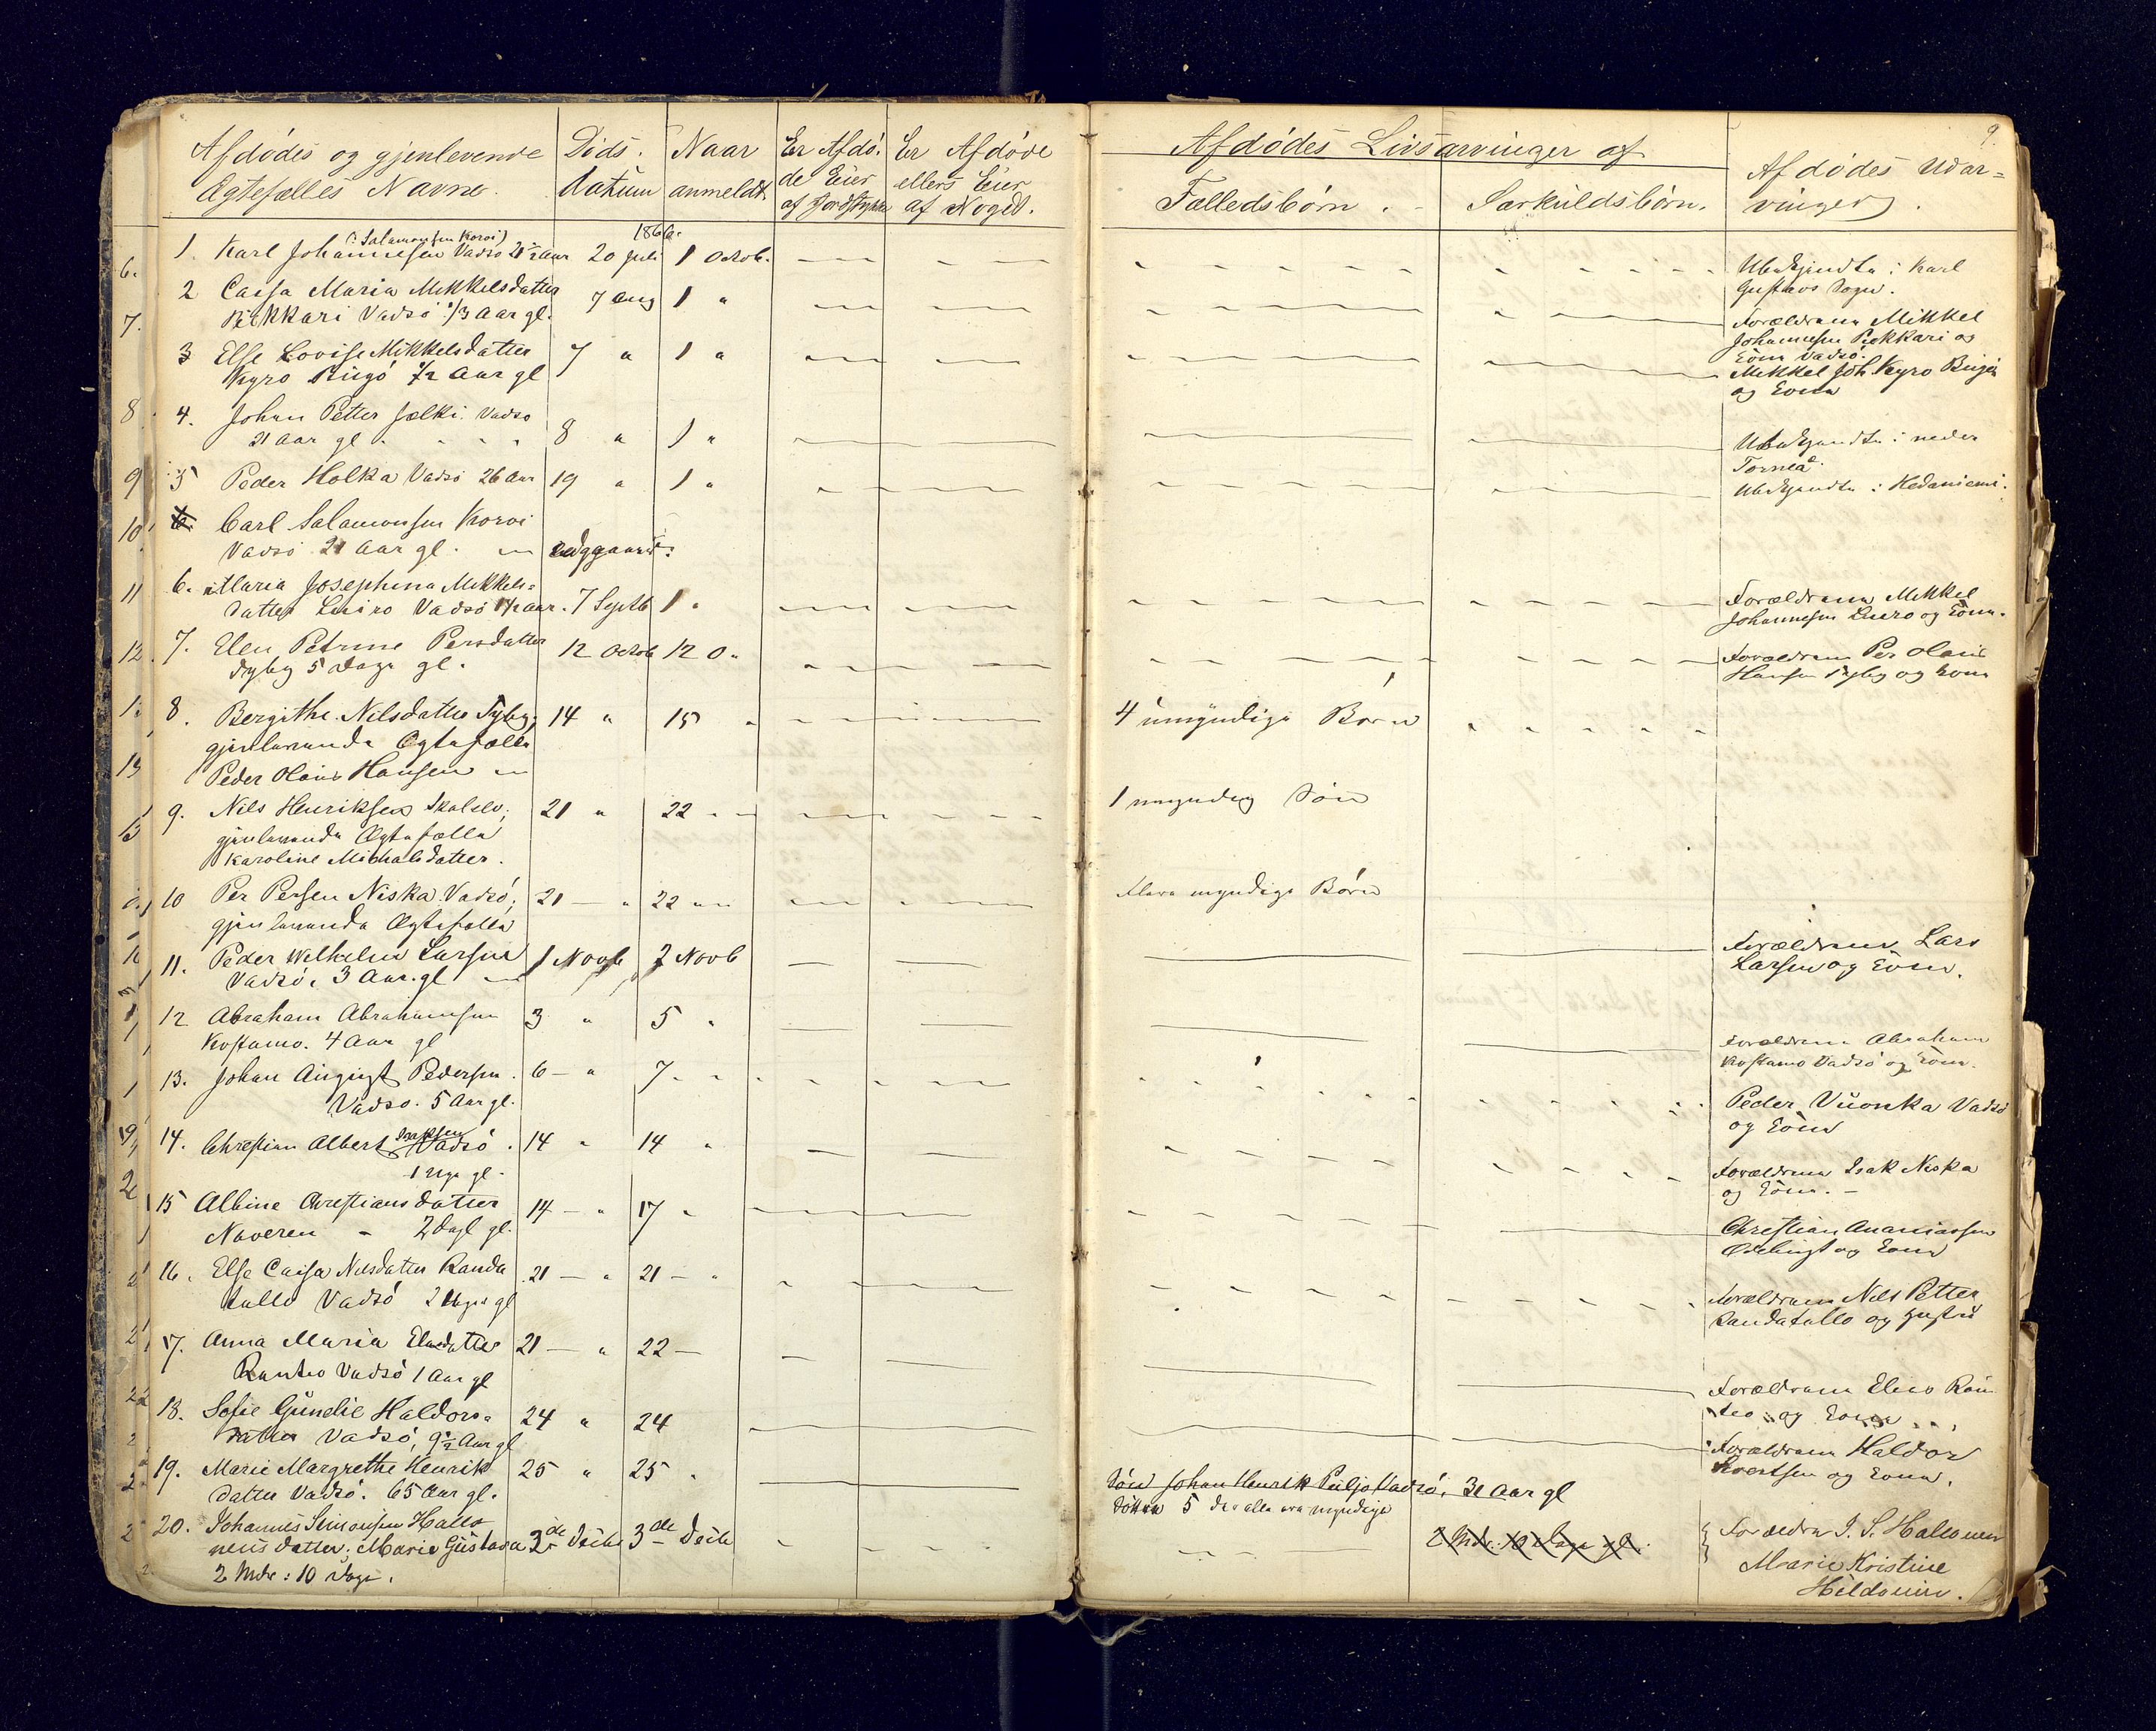 Afdødes og gjenlevende
Ægtefælles Navne.
Døds-
datum
Naar
anmeldt.
Er Afdø-
de Eier
af Jordstykke
Er Afdøde
ellers Eier
af Noget.
1866.
1. Karl Johannesen Vadsø 21½ Aar 20 Juli 1 Octob.
(: Salamonsen Korvi)
2 Caisa Maria Mikkelsdatter 7 Aug 1 "
Pekkari Vadsø 1/3 Aar gl.
3 Else Lovise Mikkelsdatter 7 " 1 "
Kyro Bugø ½ Aar gl
4. Johan Petter Jelki Vadsø
21 Aar gl. 8 " 1 "
5 Peder Holka Vadsø 26 Aar 19 " 1 "
6. Carl Salamonsen Korvi
Vadsø 21 Aar gl. udggaard.
6. Maria Josephina Mikkels-
datter Luiro Vadsø 1½ Aar. 7 Septb 1 "
7. Elen Petrine Persdatter 12 Octob 12 O.
Tyby 5 Dage gl.
8. Bergithe Nilsdatter Tyby; 14 " 15 "
gjenlevende Ægtefælle
Peder Olaus Hansen
9. Nils Henriksen Skalelv; 21 " 22
gjenlevende Ægtefælle
Karoline Michalsdatter.
10 Per Persen Niska Vadsø; 21 — " 22
gjenlevende Ægtefælle
11. Peder Wilhelm Larsen 1 Novb 2 Novb
Vadsø, 3 Aar gl
12 Abraham Abrahamsen 3 " 5 "
Kostamo. 4 Aar gl
13. Johan August Pedersen. 6 — " 7
Vadsø. 5 Aar gl.
14. Christian Albert Isaksen Vadsø. 14 " 14 "
1 Uge gl.
15 Albine Christiansdatter 14 — " 17 "
Naveren - 2 Dage gl.
16. Else Caisa Nilsdatter Randa 21 — " 21 — "
tullo Vadsø 2 Uger gl
17. Anna Maria Eliasdatter 21 — " 22 —
Rantio Vadsø 1 Aar gl
18. Sofie Gunelie Haldors- 24 " 24
datter Vadsø, 9½ Aar gl
19. Marie Margrethe Henrik 25 " 25 "
datter Vadsø. 65 Aar gl.
20. Johannes Simonsen Hallo
nens datter, Marie Gustava 3de Decbr 3de Decb
2 Mdr: 10 Dage.
9.
Afdødes Livsarvinger af
Fælledsbørn.
Særkuldsbørn.
Afdødes Udar-
vinger.
Ubekjendte i Karl
Gustavs Sogn.
Forældrene Mikkel
Johannesen Pekkari og
Kone Vadsø.
Mikkel Joh. Kyro Bugø
og Kone
Ubekjendte i neder
Torneå.
Ubekjendte i Hedaniemi.
Forældrene Mikkel
Johannesen Luiro og Kone.
Forældrene Per Olaus
Hansen Tyby og Kone
4 umyndige Børn
1 myndig Søn
Flere myndige Børn
Forældrene Lars
Larsen og Kone.
Forældrene Abraham
Kostamo Vadsø og Kone.
Peder Vuonka Vadsø
og Kone
Forældrene Isak Niska
og Kone. -
Christian Ananiassen
og Kone
Forældrene Nils Petter
Randatullo og Hustru
Forældrene Elias Ran
tio og Kone
Forældrene Haldor
Sivertsen og Kone.
Søn Johan Henrik Puljo Vadsø, 31 Aar gl
5 der alle ere myndige
2 Mdr. 10 Dage gl.
Forældre J. S. Hallonen
Marie Kristine
Hildonen.